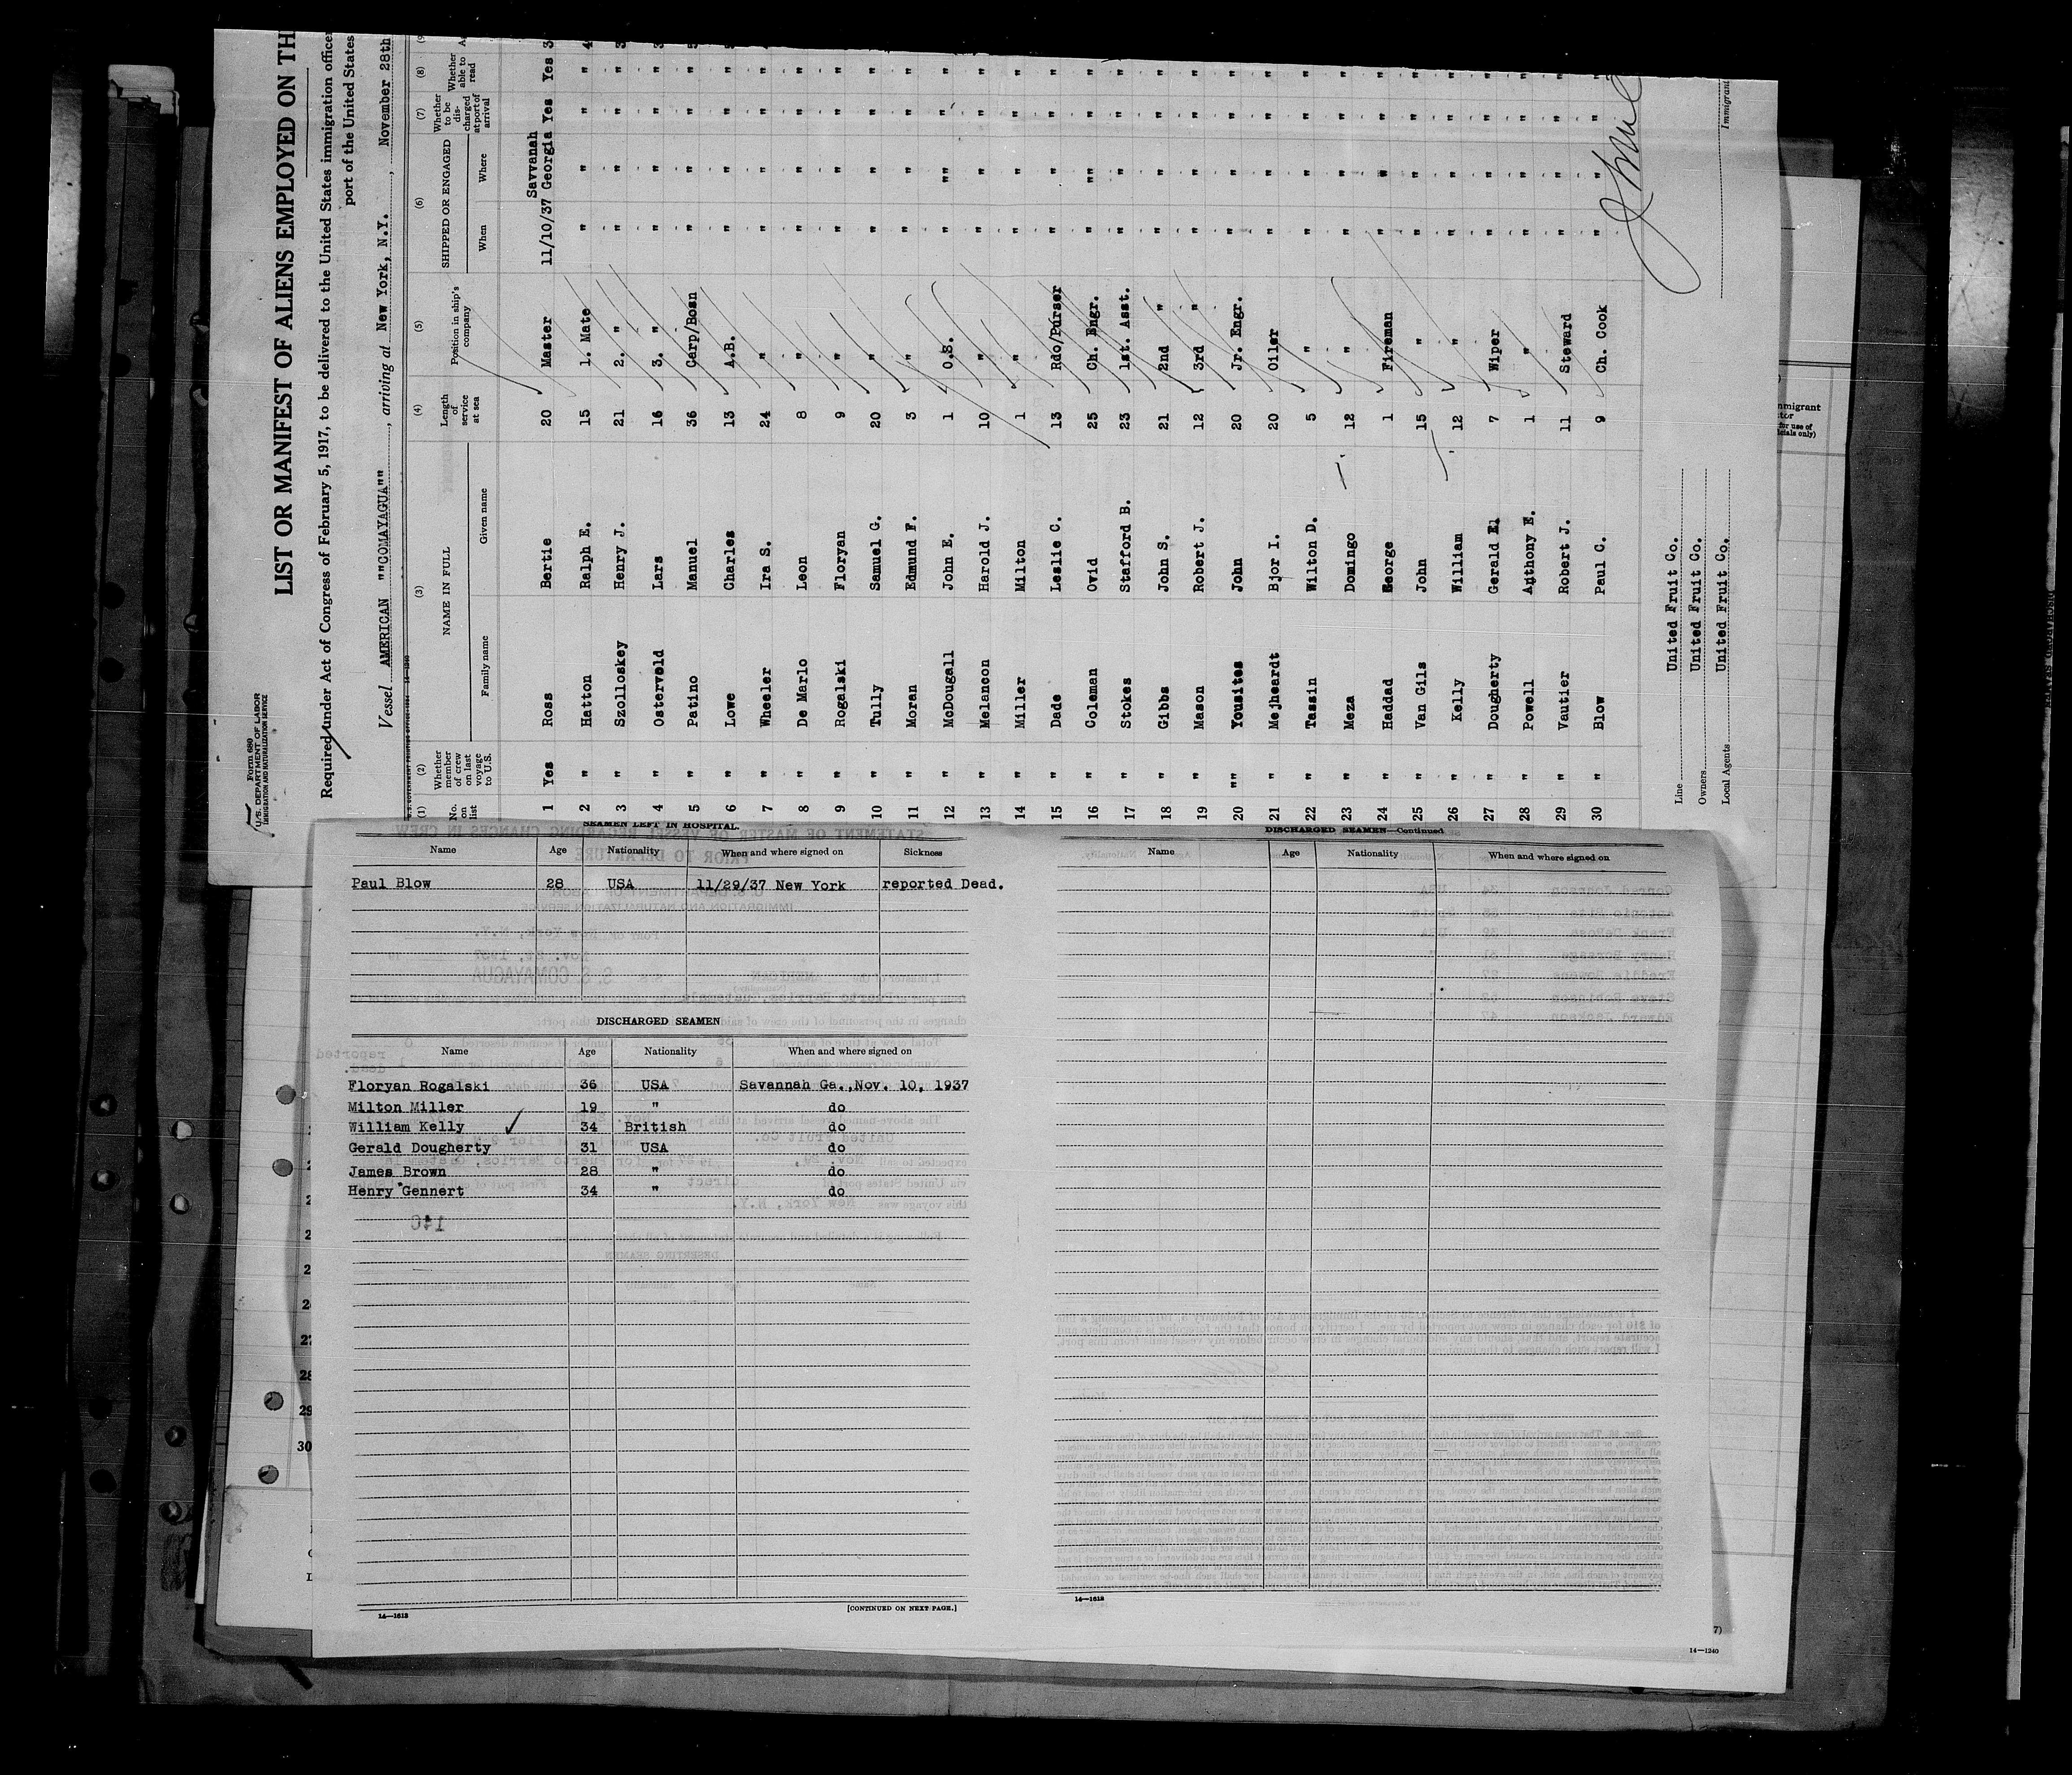 Form 680
U.S. DEPARTMENT OF LABOR
IMMIGRATION AND NATURALIZATION SERVICE
LIST OR MANIFEST OF ALIENS EMPLOYED ON TH
Required under Act of Congress of February 5, 1917, to be delivered to the United States immigration officer
port of the United States
Vessel AMERICAN ""COMAYAGUA"", arriving at New York, N.Y., November 28th
(1) (2) (3) (4) (5) (6) (7) (8)
No. on list
Whether member of crew on last voyage to U.S.
NAME IN FULL
Family name Given name
Length of service at sea
Position in ship's company
SHIPPED OR ENGAGED
When Where
Whether to be discharged at port of arrival
Whether able to read
1 Yes Ross Bertie 20 Master 11/10/37 Savvanah Georgia Yes Yes
2 " Hatton Ralph E. 15 1. Mate " " " "
3 " Szolloskey Henry J. 21 2. " " " " "
4 " Osterveld Lars 16 3. " " " " "
5 " Patino Manuel 36 Carp/Bosn " " " "
6 " Lowe Charles 13 A.B. " " " "
7 " Wheeler Ira S. 24 " " " " "
8 " De Marlo Leon 8 " " " " "
9 " Rogalski Floryan 9 " " " " "
10 " Tully Samuel G. 20 " " " " "
11 " Moran Edmund F. 3 " " " " "
12 " McDougall John E. 1 O.S. " "" " "
13 " Melancon Harold J. 10 " " " " "
14 " Miller Milton 1 " " " " "
15 " Dade Leslie C. 13 Rdo/Purser " " " "
16 " Coleman Ovid 25 Ch. Engr. " "" " "
17 " Stokes Stafford B. 23 1st. Asst. " " " "
18 " Gibbs John S. 21 2nd " " " " "
19 " Mason Robert J. 12 3rd " " " " "
20 "" Yousites John 20 Jr. Engr. " " " "
21 " Mejheardt Bjor I. 20 Oiler " " " "
22 " Tassin Wilton D. 5 " " " " "
23 " Meza Domingo 12 " " " " "
24 " Haddad George 1 Fireman " " " "
25 " Van Gils John 15 " " " " "
26 " Kelly William 12 " " " " "
27 " Dougherty Gerald El 7 Wiper " " " "
28 " Powell Anthony E. 1 " " " " "
29 " Vautier Robert J. 11 Steward " " " "
30 " Blow Paul C. 9 Ch. Cook " " " "
Line United Fruit Co.
Owners United Fruit Co.
Local Agents United Fruit Co.
Immigrant
SEAMEN LEFT IN HOSPITAL.
Name Age Nationality When and where signed on Sickness
Paul Blow 28 USA 11/29/37 New York reported Dead.
DISCHARGED SEAMEN
Name Age Nationality When and where signed on
Floryan Rogalski 36 USA Savannah Ga.,Nov. 10, 1937
Milton Miller 19 " do
William Kelly 34 British do
Gerald Dougherty 31 USA do
James Brown 28 " do
Henry Gennert 34 " do
14—1618
[CONTINUED ON NEXT PAGE.]
DISCHARGED SEAMEN—Continued
Name Age Nationality When and where signed on
14—1618
14—1240